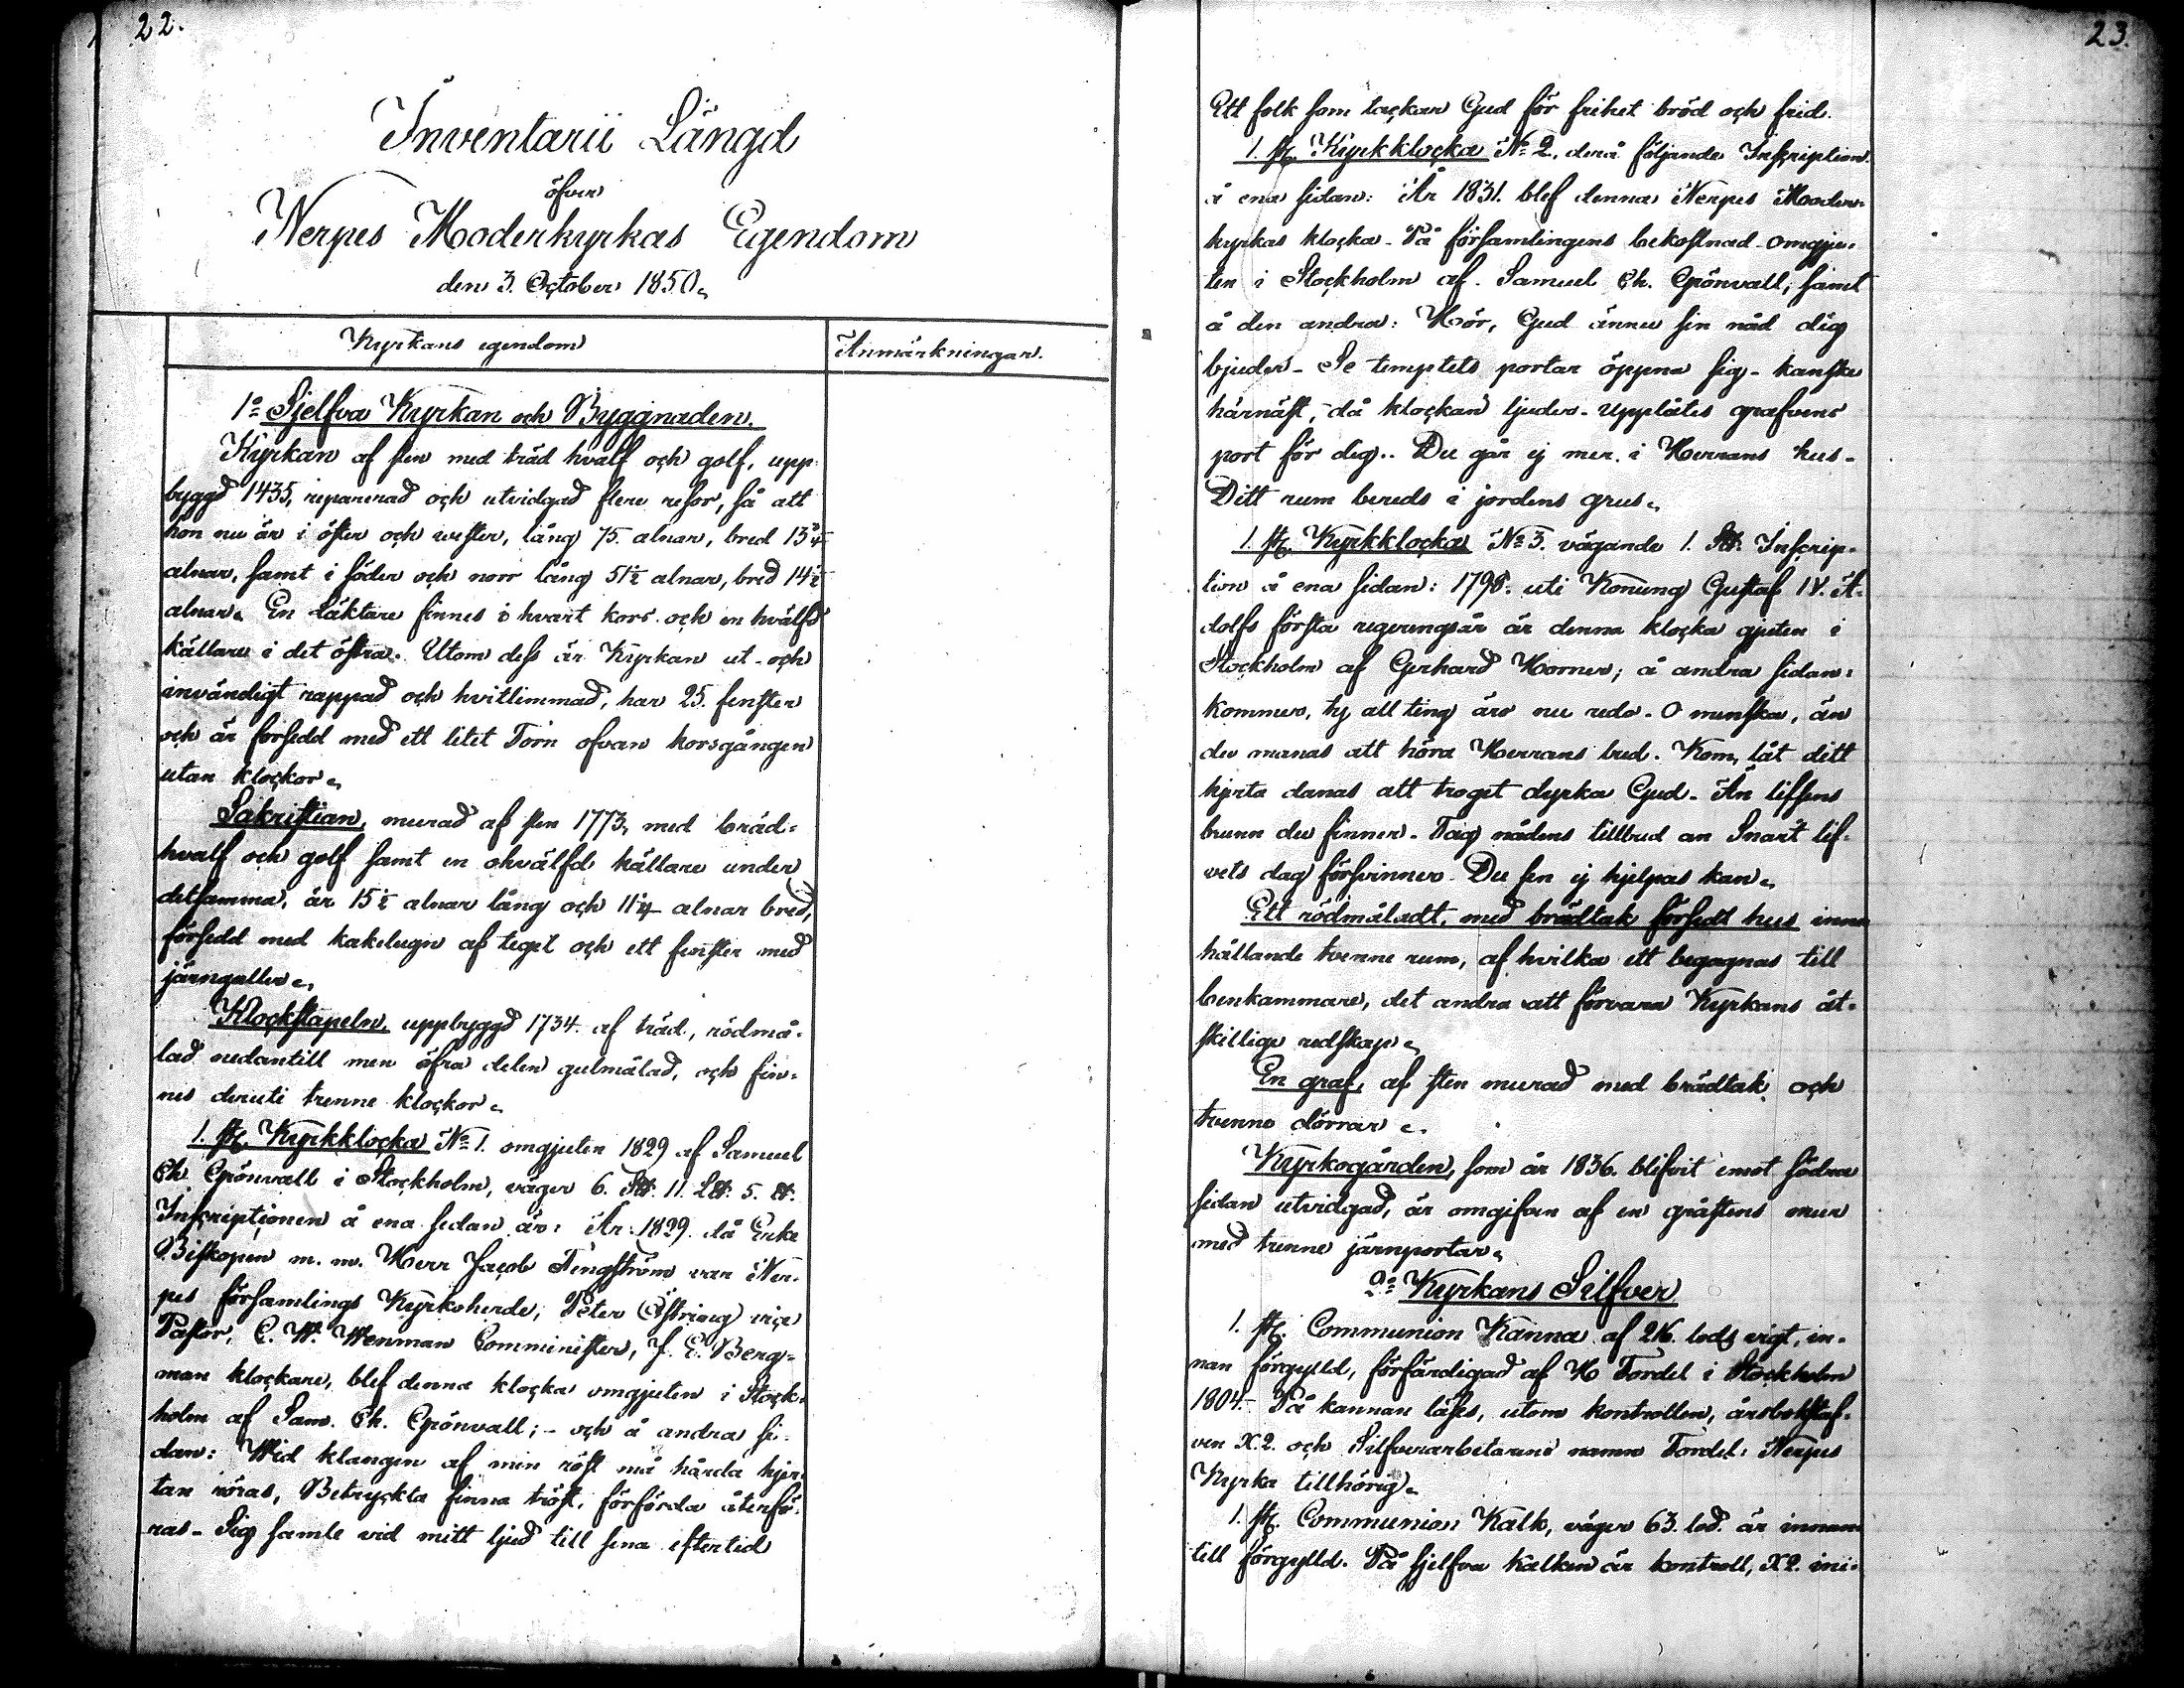 22.
Inventarii Längd
öfver
Nerpes Moderkyrkas Egendom
den 3. October 1850.
Kyrkans egendom
Anmärkningar.
1o Sjelfva Kyrkan och Byggnaden.
Kyrkan af sten med träd hvalf och golf, upp-
byggd 1435, reparerad och utvidgad flere resor, så att
hon nu är i öster och wester, lång 75. alnar, bred 13 3/4
alnar, samt i söder och norr lång 51 1/2 alnar, bred 14 1/2
alnar. En Läktare finnes i hvart kors och en hvälfd
källare i det östra. Utom dess är Kyrkan ut- och
invändigt rappad och hvitlimmad, har 25. fenster
och är försedd med ett litet Torn ofvan korsgången
utan klockor.
Sakristian, murad af sten 1773, med bräd-
hvalf och golf samt en ohvälfd källare under
detsamma, är 15 1/2 alnar lång och 11 1/4 alnar bred,
försedd med kakelugn af tegel och ett fenster med
järngaller.
Klockstapeln, uppbyggd 1734. af träd, rödmå-
lad nedantill men öfra delen gulmålad, och fin-
nes deruti trenne klockor.
1. st. Kyrkklocka No 1. omgjuten 1829 af Samuel
Ch. Grönvall i Stockholm, väger 6. S℔. 11. L℔. 5. ℔.
Inscriptionen å ena sidan är: År: 1829. då Erke
Biskopen m. m. Herr Jacob Tengström var Ner-
pes församlings Kyrkoherde, Peter Östring vice
Pastor, C. W. Wenman Comminister, J. E. Berg-
man klockare, blef denna klocka omgjuten i Stock-
holm af Sam. Ch. Grönvall; - och å andra si-
dan: Wid klangen af min röst må hårda hjer-
tan röras, Betryckta finna tröst, förförda återfö-
ras - Sig samle vid mitt ljud till sena eftertid
23.
Ett folk som tackar Gud för frihet bröd och frid.
1. st. Kyrkklocka No 2. derå följande Inscription.
å ena sidan: År 1831. blef denna Nerpes Moder-
kyrkas klocka - På församlingens bekostnad - omgju-
ten i Stockholm af. Samuel Ch. Grönvall; samt
å den andra: Hör, Gud ännu sin nåd dig
bjuder - Se templets portar öppna sig - kanske
härnäst, då klockan ljuder - upplåtes grafvens
port för dig.. Du går ej mer. i Herrans hus -
Ditt rum bereds i jordens grus.
1. st. Kyrkklocka No 3. vägande 1. S℔. Inscrip-
tion å ena sidan: 1796. uti Konung Gustaf IV. A-
dolfs första regeringsår är denna klocka gjuten i
Stockholm af Gerhard Horner; å andra sidan:
Kommer, ty all ting äro nu redo. O menska, än
du manas att höra Herrans bud. Kom, låt ditt
hjerta danas att troget dyrka Gud. Än lifsens
brunn du finner. Tag nådens tillbud an Snart lif-
vets dag försvinner. Du sen ej hjelpas kan.
Ett rödmåladt, med brädtak försedt hus inne
hållande tvenne rum, af hvilka ett begagnas till
benkammare, det andra att förvara Kyrkans åt-
skillige redskap.
En graf, af sten murad med brädtak och
tvenne dörrar.
Kyrkogården, som år 1836. blifvit emot södra
sidan utvidgad, är omgifven af en gråstens mur
med trenne järnportar.
2o Kyrkans Silfver
1. st. Communion Kanna af 216. lods vigt, in-
nan förgylld, förfärdigad af H Fordel i Stockholm
1804. På kannan läses, utom kontrollen, årsbokstaf-
ven X.2. och Silfverarbetarens namn Fordel: Nerpes
Kyrka tillhörig.
1. st. Communion Kalk, väger 63. lod. är innan
till förgylld. På sjelfva kalken är kontroll, X2. ini-